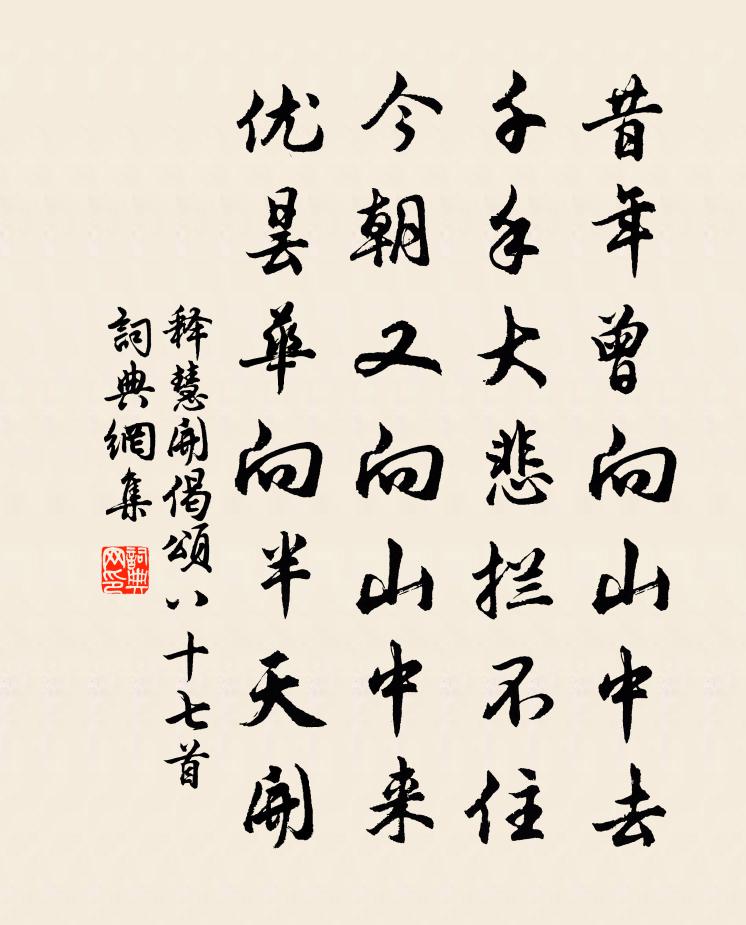 昔年曾向山中去
千手大悲拦不住
今朝又向山中来
优昙华向半天開
释慧開偈頌八十七首
詞典網集
詞典网印